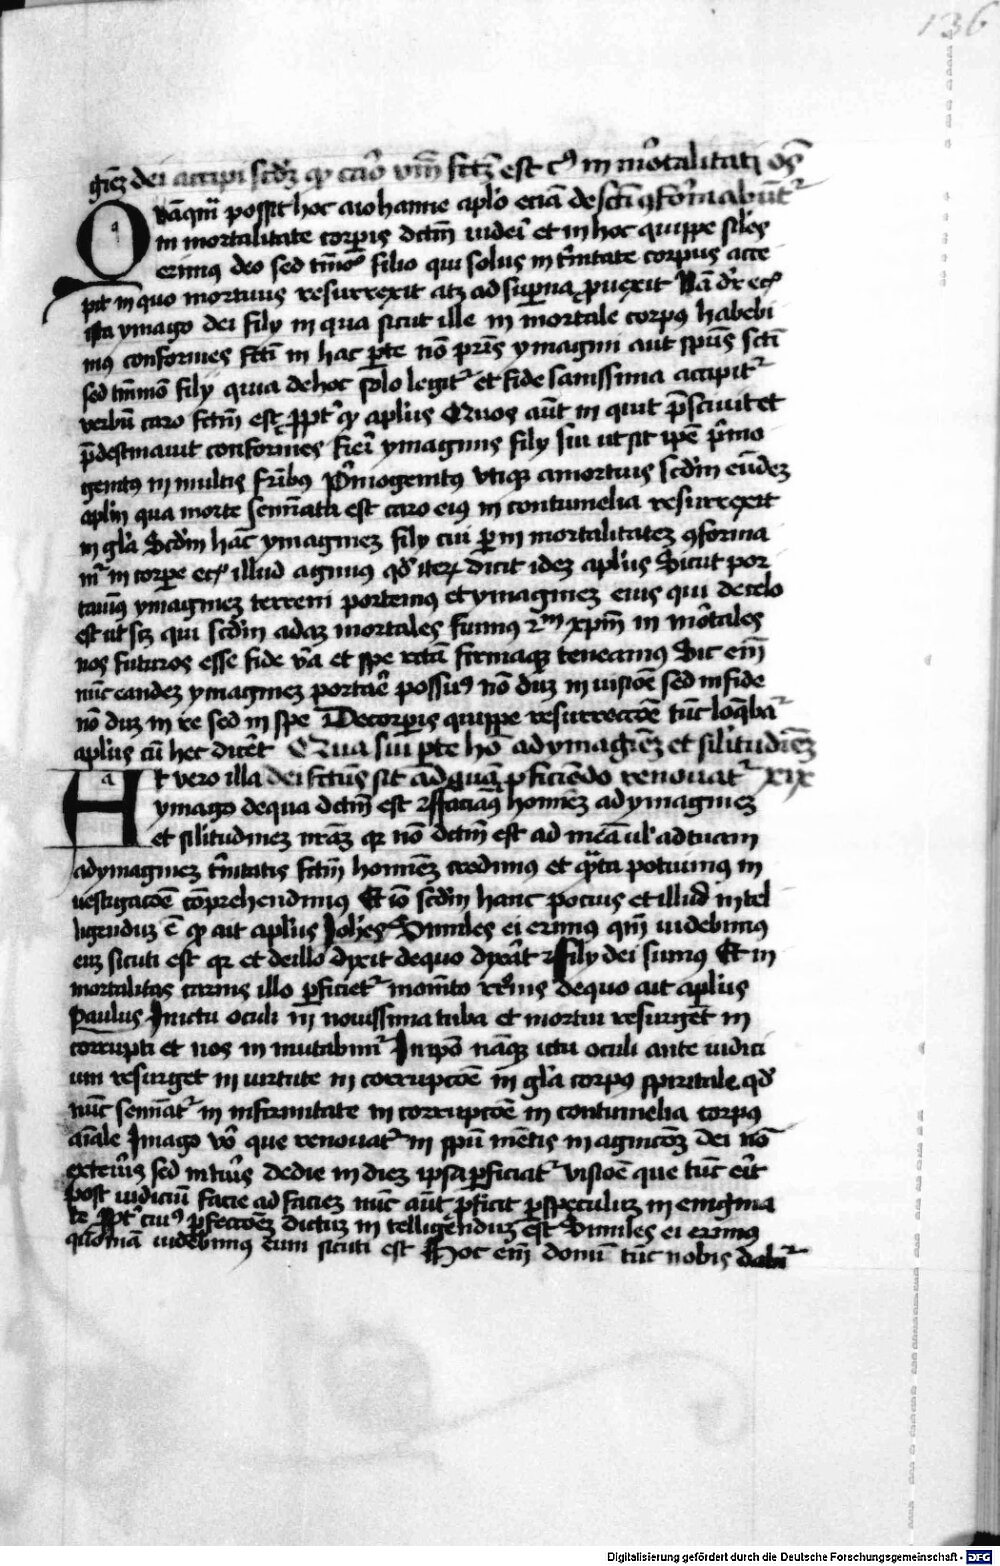 136
gīez dei accipi scd̄z ꝙ caro v̄m fct̄ est cꝰ in mortalitati oēs
Quāquā possit hoc a iohanne aplo eciā de fct̄i ꝯformabunt᷑
in mortalitate corpis dctm̄ videri et in hoc quippe siles
erimus deo sed tm̄o filio qui solus in t͛nitate corpus acce
pit in quo mortuus resurrexit atꝫ ad superna ꝓuexit Nā dr̄ ec̄
ista ymago dei filij in qua sicut ille in mortale corpꝰ habebi
mꝰ conformes fcti in hac pte nō pris ymagini aut spūs scti
sed tm̄mo filij quia de hoc solo legit᷑ et fide sanissima accipit᷑
verbū caro fctm̄ est ꝓpt᷑ ꝙ aplius Quos aūt in quit p̄sciuit et
p̄destinauit conformes fieri ymaginis filij sui ut sit ipē p͛mo
genitꝰ in multis fr̄ibꝰ P͛mogenitꝰ vtiqꝫ a mortuis scd̄m eūdez
aplm̄ qua morte semīata est caro eiꝰ in contumelia resurrexit
in gl̄a Scd̄m hāc ymaginez filij cui p in mortalitatez ꝯforma
m᷑ in corpe ec̄ illud agimus qd̄ iterꝫ dicit idez aplius Sicut por
tauimꝰ ymaginez terreni portemꝰ et ymaginez eius qui de celo
est ut scꝫ qui scd̄m adaz mortales fuimꝰ scdm xpm̄ in mōtales
nos futuros esse fide v͛a et spe certa firmaqꝫ teneamꝰ Sic em̄
nūc eandez ymaginez portare possumꝰ nō duz in visiōe sed in fide
nō duz in re sed in spe De corpis quippe resurrectōe tūc loqba᷑
aplius cū hec dic͛et Qua sui pte hō ad ymagīez et silitudīez
At vero illa dei fctus sit ad quā pficiendo renouat᷑ xix
ymago de qua dctm̄ est faciamꝰ hominez ad ymaginez
et silitudinez nraz qr nō dctm̄ est ad meā ul᷑ ad tuam
ad ymaginez t͛nitatis fctm̄ hominez credimꝰ et qͣnta potuimꝰ in
uestigacōe cōprehendimꝰ Et iō scd̄m hanc pocius et illud intel
ligenduz ē ꝙ ait aplius Joh̄es Similes ei erimꝰ qm̄ uidebimus
eū sicuti est qr et de illo dixit de quo dixerat filij dei sumus Et in
mortalitas carnis illo pficiet᷑ momēto de quo ait aplius
Paulus In ictu oculi in nouissima tuba et mortui resurgēt in
corrupti et nos in mutabim᷑ In ipo nāqꝫ ictu oculi ante iudici
um resurget in virtute in corrupcōe in gl̄a corpꝰ spiritale qd̄
nūc semīat᷑ in infirmitate in corrupcōe in contumelia corpꝰ
aīale Imago vō que renouat᷑ in spū mētis in agnicōe dei nō
exteriꝰ sed in t͛iꝰ de die in diez ipsa pficiat᷑ visiōe que tūc erit
post iudiciū facie ad faciez nūc aūt pficit p speculuz in enigma
te ꝓpt᷑ cuiꝰ pfectōez dictuz in telligenduz est Similes ei erimꝰ
quōniā uidebimus eum sicuti est Hoc em̄ donū tūc nobis dabit᷑
Digitalisierung gefördert durch die Deutsche Forschungsgemeinschaft - DFG